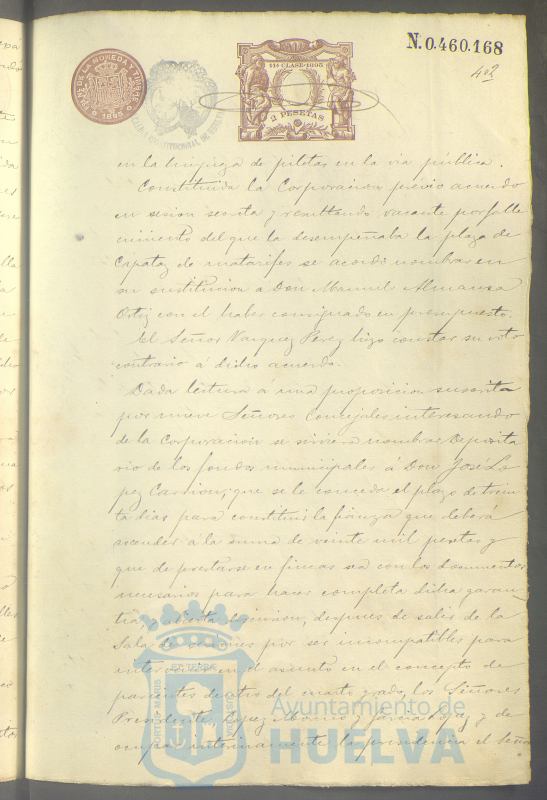 N. 0.460.168
402
11ª CLASE-1895
2 PESETAS
1895
en la limpieza de piletas en la via pública.
Constituida la Corporacion previo acuerdo
en sesion secreta y resultando vacante por falle
cimiento del que la desempeñaba la plaza de
Capataz de matarifes se acordó nombrar en
su sustitucion a Don Manuel Almansa
Ortiz con el haber consignado en presupuesto.
El Señor Vazquez Perez hizo constar su voto
contrario á dicho acuerdo.
Dada lectura á una proposicion suscrita
por nueve Señores Concejales interesando
de la Corporacion se sirviera nombrar Deposita
rio de los fondos municipales á Don José Lo
pez que se le conceda el plazo de trein
ta dias para constituir la fianza que deberá
ascender a la suma de veinte mil pesetas y
que de prestarse en fincas sea con los documentos
necesarios para hacer completa dicha garan
tia, abierta discusion, despues de salir de la
Sala de sesiones por ser incompatibles para
intervenir en el asunto en el concepto de
parientes dentro del cuarto grado, los Señores
Presidente Lopez y Garcia Lopez y de
ocupar interinamente la presidencia el Señor
Ayuntamiento de
HUELVA